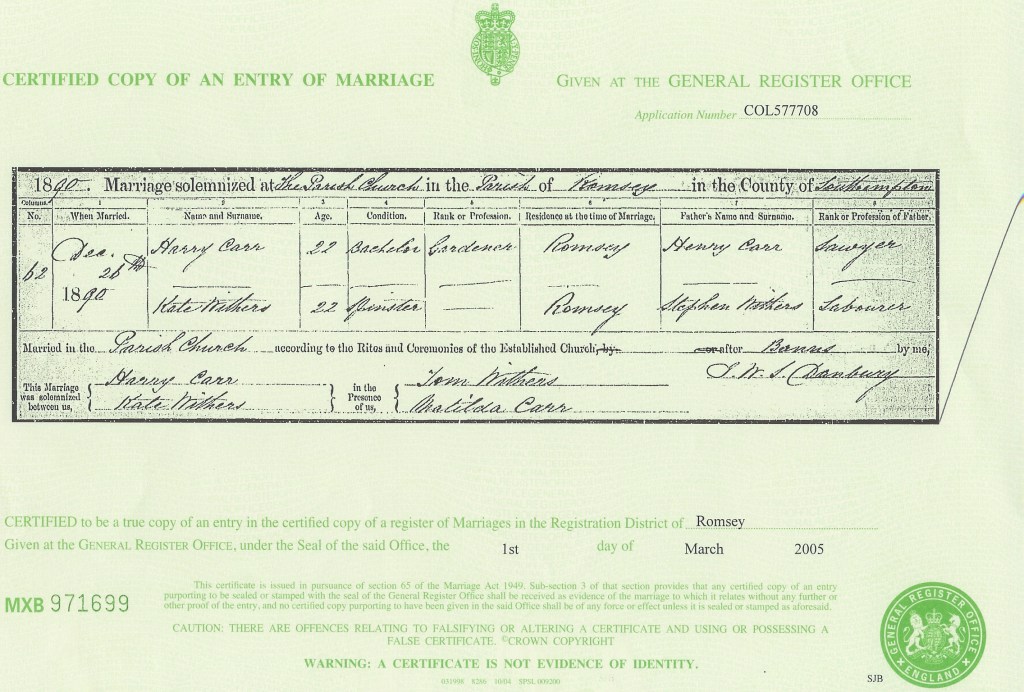 CERTIFIED COPY OF AN ENTRY OF MARRIAGE
GIVEN AT THE GENERAL REGISTER OFFICE
Application Number COL577708
1890. Marriage solemnized at The Parish Church in the Parish of Romsey in the County of Southampton
Columns. 1 2 3 4 5 6 7 8
No. When Married. Name and Surname. Age. Condition. Rank or Profession. Residence at the time of Marriage. Father's Name and Surname. Rank or Profession of Father.
62 Dec. 26th 1890 Harry Carr 22 Bachelor Gardener Romsey Henry Carr Sawyer
Kate Withers 22 Spinster Romsey Stephen Withers Labourer
Married in the Parish Church according to the Rites and Ceremonies of the Established Church, by or after Banns by me,
This Marriage was solemnized between us, Harry Carr in the Presence of us, Tom Withers
Kate Withers Matilda Carr
CERTIFIED to be a true copy of an entry in the certified copy of a register of Marriages in the Registration District of Romsey
Given at the GENERAL REGISTER OFFICE, under the Seal of the said Office, the 1st day of March 2005
MXB 971699
This certificate is issued in pursuance of section 65 of the Marriage Act 1949. Sub-section 3 of that section provides that any certified copy of an entry
purporting to be sealed or stamped with the seal of the General Register Office shall be received as evidence of the marriage to which it relates without any further or
other proof of the entry, and no certified copy purporting to have been given in the said Office shall be of any force or effect unless it is sealed or stamped as aforesaid.
CAUTION: THERE ARE OFFENCES RELATING TO FALSIFYING OR ALTERING A CERTIFICATE AND USING OR POSSESSING A
FALSE CERTIFICATE. ©CROWN COPYRIGHT
WARNING: A CERTIFICATE IS NOT EVIDENCE OF IDENTITY.
031998 8286 10/04 SPSL 009200
SJB
GENERAL REGISTER OFFICE
ENGLAND